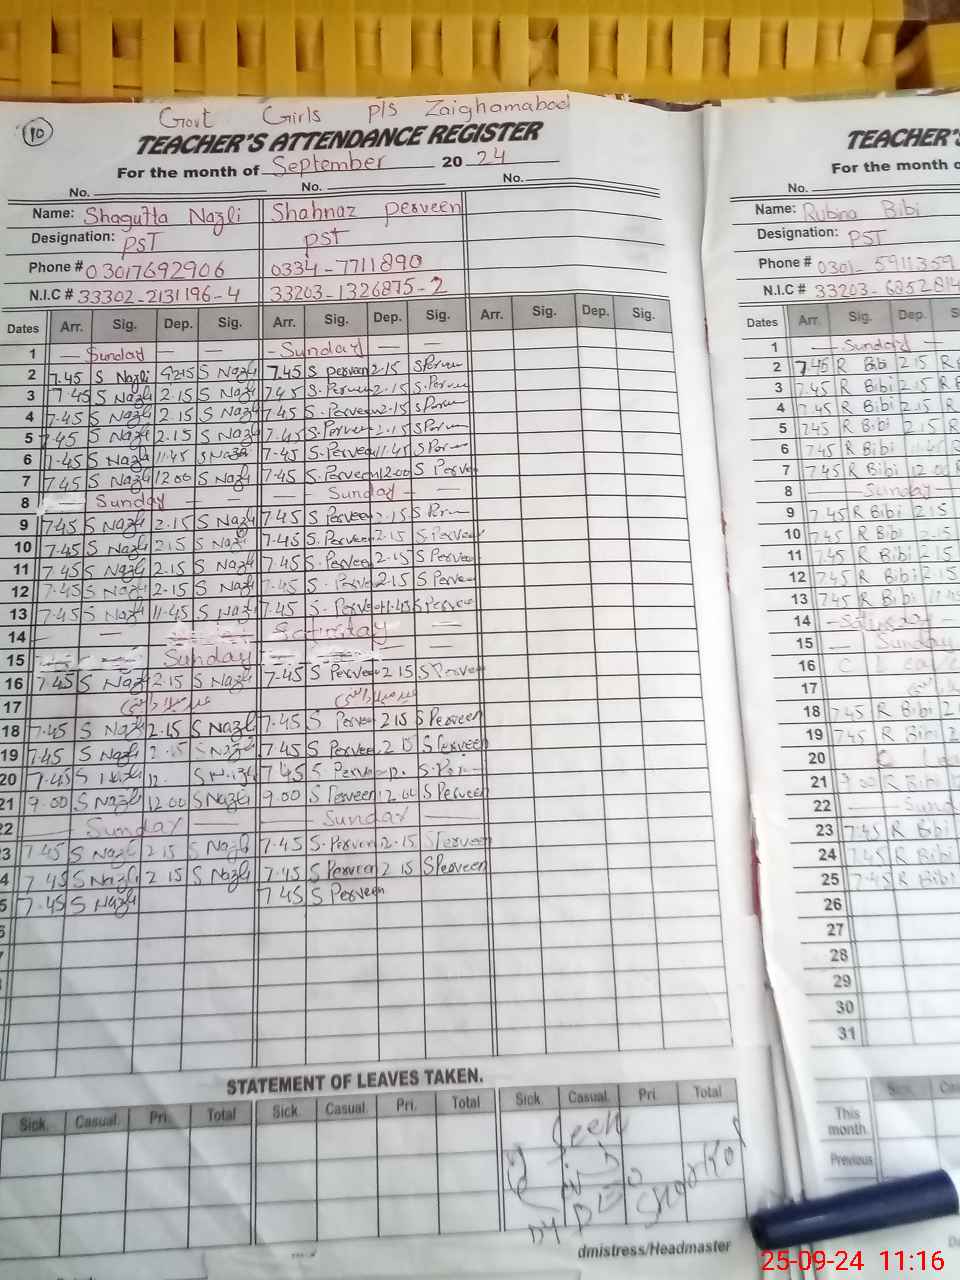 10
Govt Girls P/S Zaighamabad
TEACHER'S ATTENDANCE REGISTER
For the month of September 20 24
No. No. No.
Name: Shagufta Nazli Shahnaz Perveen
Designation: PST PST
Phone # 03017692906 0334-7711890
N.I.C # 33302-2131196-4 33203-1326875-2
Dates Arr. Sig. Dep. Sig. Arr. Sig. Dep. Sig. Arr. Sig. Dep. Sig.
1 Sunday Sunday
2 7.45 S Nazli 2.15 S Nazli 7.45 S Perveen 2.15 S Perveen
3 7.45 S Nazli 2.15 S Nazli 7.45 S.Perveen 2.15 S.Perveen
4 7.45 S Nazli 2.15 S Nazli 7.45 S.Perveen 2.15 S Perveen
5 7.45 S Nazli 2.15 S Nazli 7.45 S.Perveen 2.15 S Perveen
6 7.45 S Nazli 11.45 S Nazli 7.45 S.Perveen 11.45 S Perveen
7 7.45 S Nazli 12 00 S Nazli 7.45 S.Perveen 12 00 S Perveen
8 Sunday Sunday
9 7.45 S Nazli 2.15 S Nazli 7.45 S Perveen 2.15 S Perveen
10 7.45 S Nazli 2.15 S Nazli 7.45 S.Perveen 2.15 S.Perveen
11 7.45 S Nazli 2.15 S Nazli 7.45 S.Perveen 2.15 S Perveen
12 7.45 S Nazli 2.15 S Nazli 7.45 S.Perveen 2.15 S Perveen
13 7.45 S Nazli 11.45 S Nazli 7.45 S.Perveen 11.45 S Perveen
14 Saturday
15 Sunday
16 7.45 S Nazli 2.15 S Nazli 7.45 S Perveen 2.15 S Perveen
17 عید میلادالنبی عید میلادالنبی
18 7.45 S Nazli 2.15 S Nazli 7.45 S Perveen 2 15 S Perveen
19 7.45 S Nazli 2.15 S Nazli 7.45 S Perveen 2 15 S Perveen
20 7.45 S Nazli 12. S Nazli 7 45 S.Perveen 12. S.Perveen
21 9.00 S Nazli 12 00 S Nazli 9.00 S Perveen 12 00 S Perveen
22 Sunday Sunday
3 7.45 S Nazli 2 15 S Nazli 7.45 S.Perveen 2.15 S Perveen
4 7.45 S Nazli 2 15 S Nazli 7.45 S Perveen 2 15 S Perveen
5 7.45 S Nazli 7 45 S Perveen
STATEMENT OF LEAVES TAKEN.
Sick. Casual. Pri. Total Sick. Casual. Pri. Total Sick. Casual. Pri. Total
Seen
Dy DEO
Shorkot
dmistress/Headmaster
TEACHER'S
For the month o
No.
Name: Rubina Bibi
Designation: PST
Phone # 0301-5911359
N.I.C # 33203-6852814
Dates Arr. Sig. Dep. S
1 Sunday
2 7.45 R Bibi 2.15 R
3 7.45 R Bibi 2.15 R
4 7.45 R Bibi 2.15 R
5 7.45 R Bibi 2.15 R
6 7.45 R Bibi 11.45 R
7 7.45 R Bibi 12 00 R
8 Sunday
9 7.45 R Bibi 2.15
10 7.45 R Bibi 2.15
11 7.45 R Bibi 2.15
12 7.45 R Bibi 2.15
13 7.45 R Bibi 11.45
14 Saturday
15 Sunday
16 C Leave
17
18 7.45 R Bibi 2
19 7.45 R Bibi 2
20 C
21 9.00 R Bibi
22 Sund
23 7.45 R Bibi
24 7.45 R Bibi
25 7.45 R Bibi
26
27
28
29
30
31
Sick. Ca
This month.
Previous
25-09-24 11:16